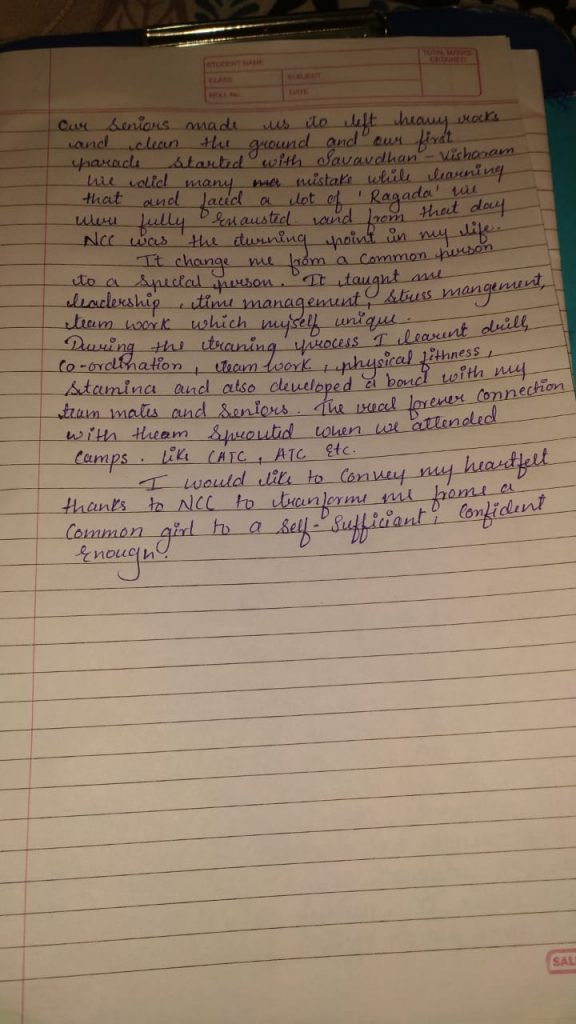 STUDENT NAME
TOTAL MARKS
OBTAINED
CLASS
SUBJECT
ROLL No.
DATE
Our Seniors made us to left heavy rocks
and clean the ground and our first
parade started with Savavdhan - Vishram
We did many mistake while learning
that and faced a lot of 'Ragada' we
were fully exausted and from that day
NCC was the turning point in my life.
It change me from a common person
to a special person. It taught me
leadership, time management, stress mangement,
team work which myself unique.
During the traning process I learent drill,
co-ordination, team work, physical fithness,
stamina and also developed a bond with my
team mates and seniors. The real forever connection
with theam sprouted when we attended
camps. like CATC, ATC etc.
I would like to convey my heartfelt
thanks to NCC to tranforme me frome a
common girl to a self-sufficient, confident
enough.
SAL